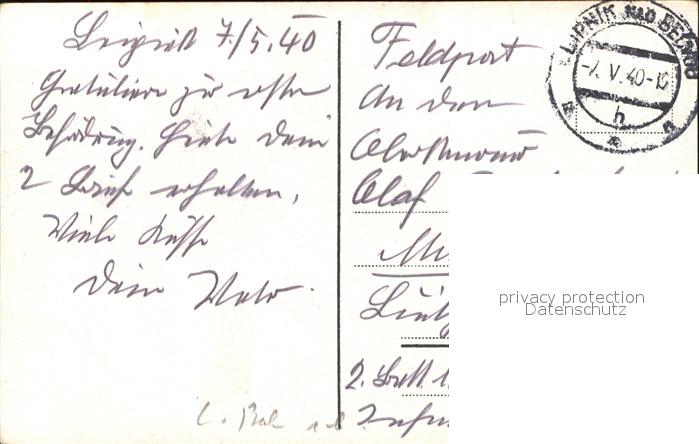 Leipnik 7./5.40
Gratuliere zur ersten
Beförderung. Heute Dein
2 Brief erhalten,
Viele Küsse
Dein Vater
Feldpost
An den
Olaf
2. Batt.
LIPNÍK NAD BEČVOU
-7. V. 40-16
h
privacy protection
Datenschutz